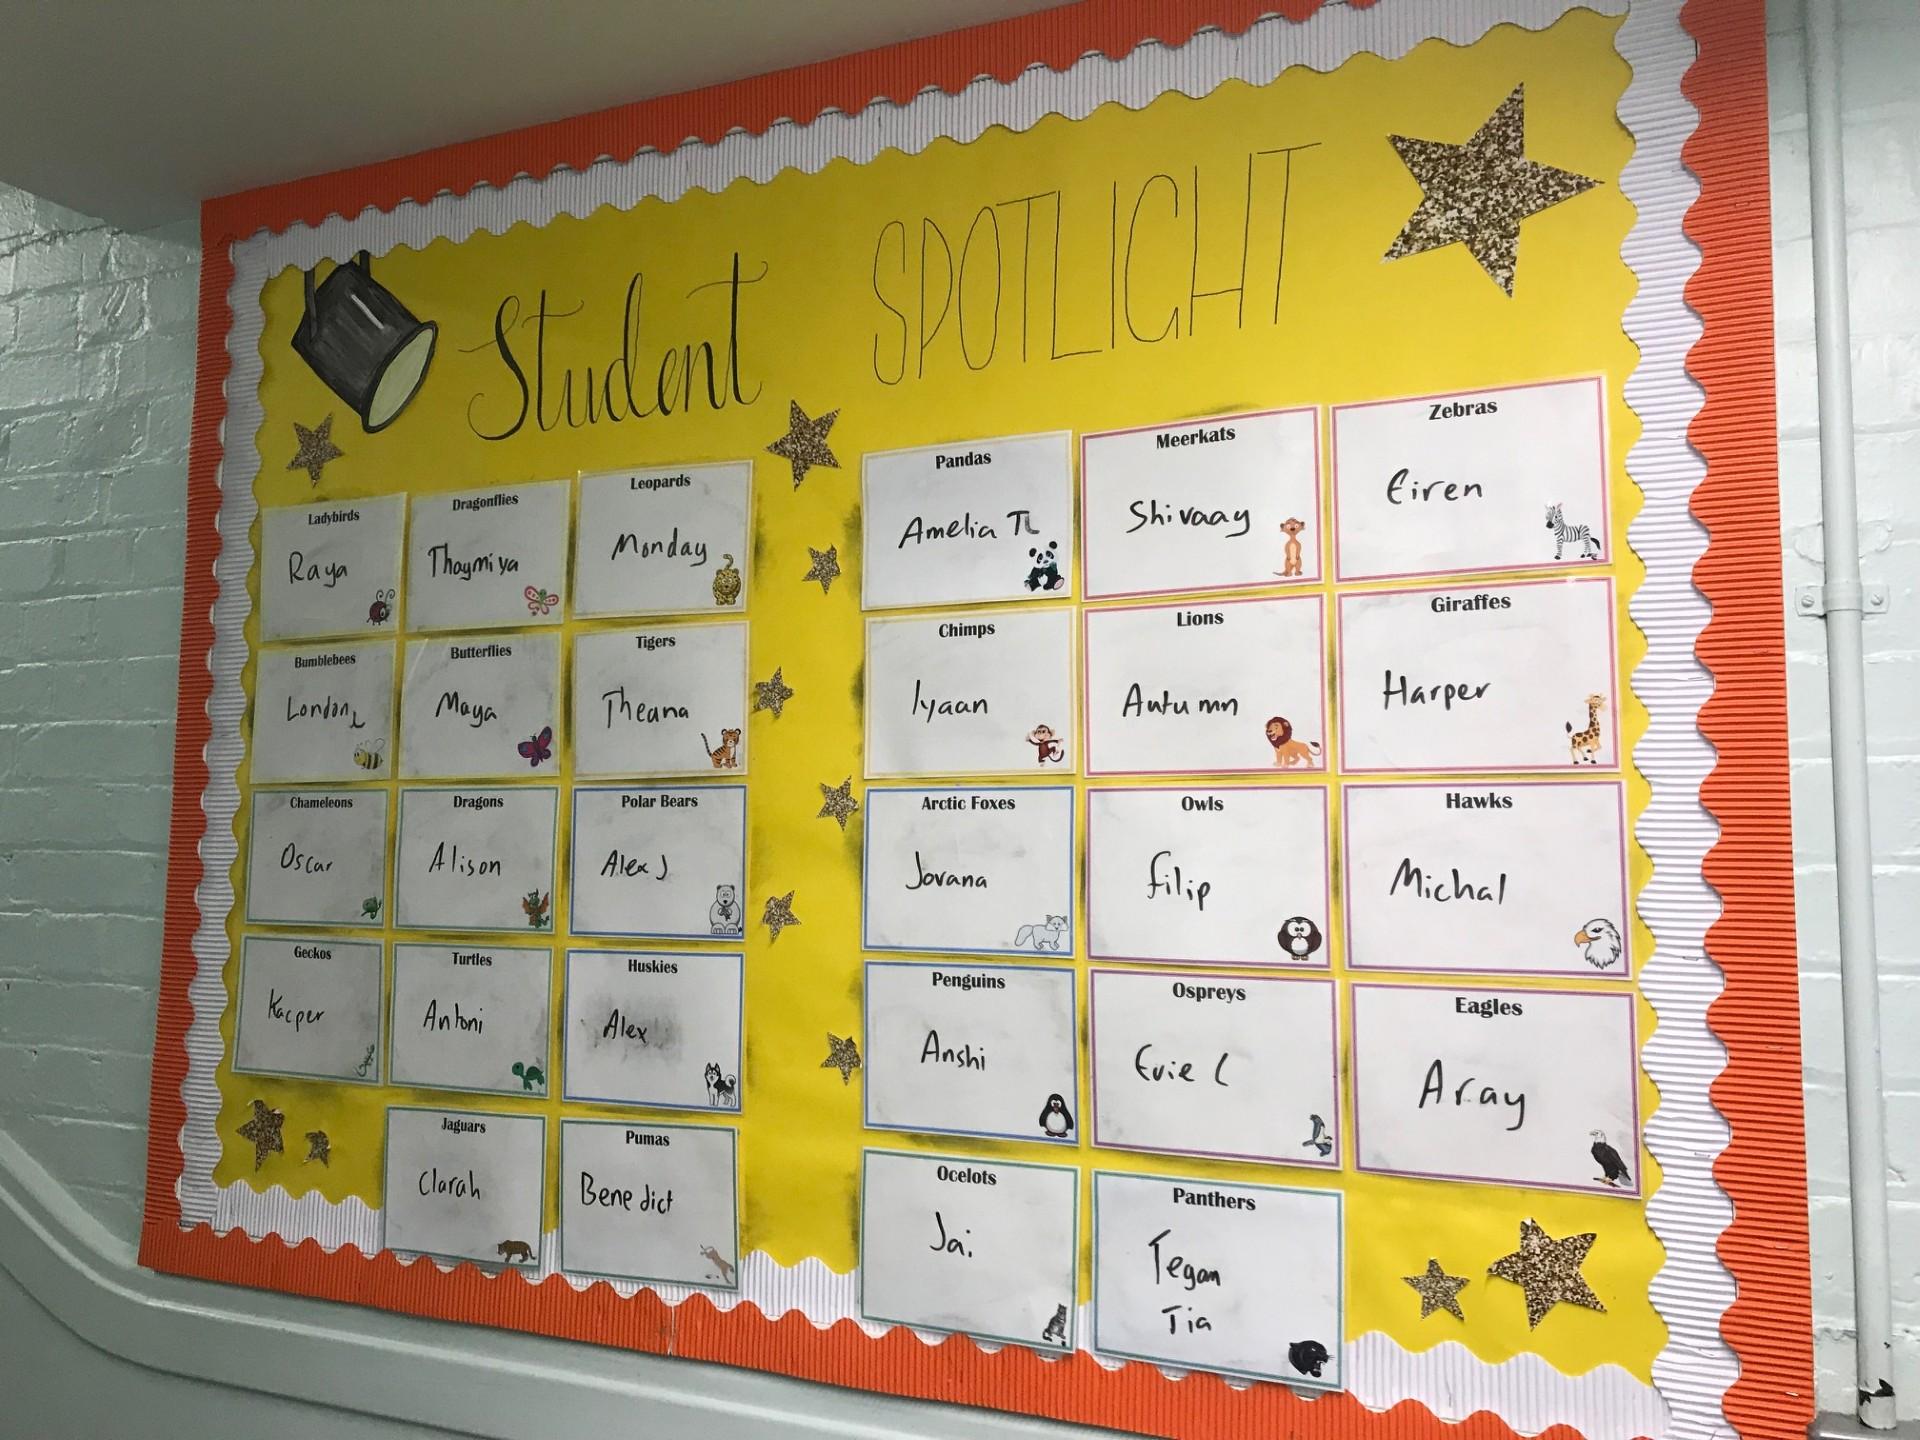 Student SPOTLIGHT
Ladybirds
Raya
Dragonflies
Thaymiya
Leopards
Monday
Bumblebees
London
Butterflies
Maya
Tigers
Theana
Chameleons
Oscar
Dragons
Alison
Polar Bears
Alex J
Geckos
Kacper
Turtles
Antoni
Huskies
Alex
Jaguars
Clarah
Pumas
Benedict
Pandas
Amelia
Meerkats
Shivaay
Zebras
Eiren
Chimps
Iyaan
Lions
Autumn
Giraffes
Harper
Arctic Foxes
Jovana
Owls
Filip
Hawks
Michal
Penguins
Anshi
Ospreys
Evie C
Eagles
Aray
Ocelots
Jai
Panthers
Tegan
Tia